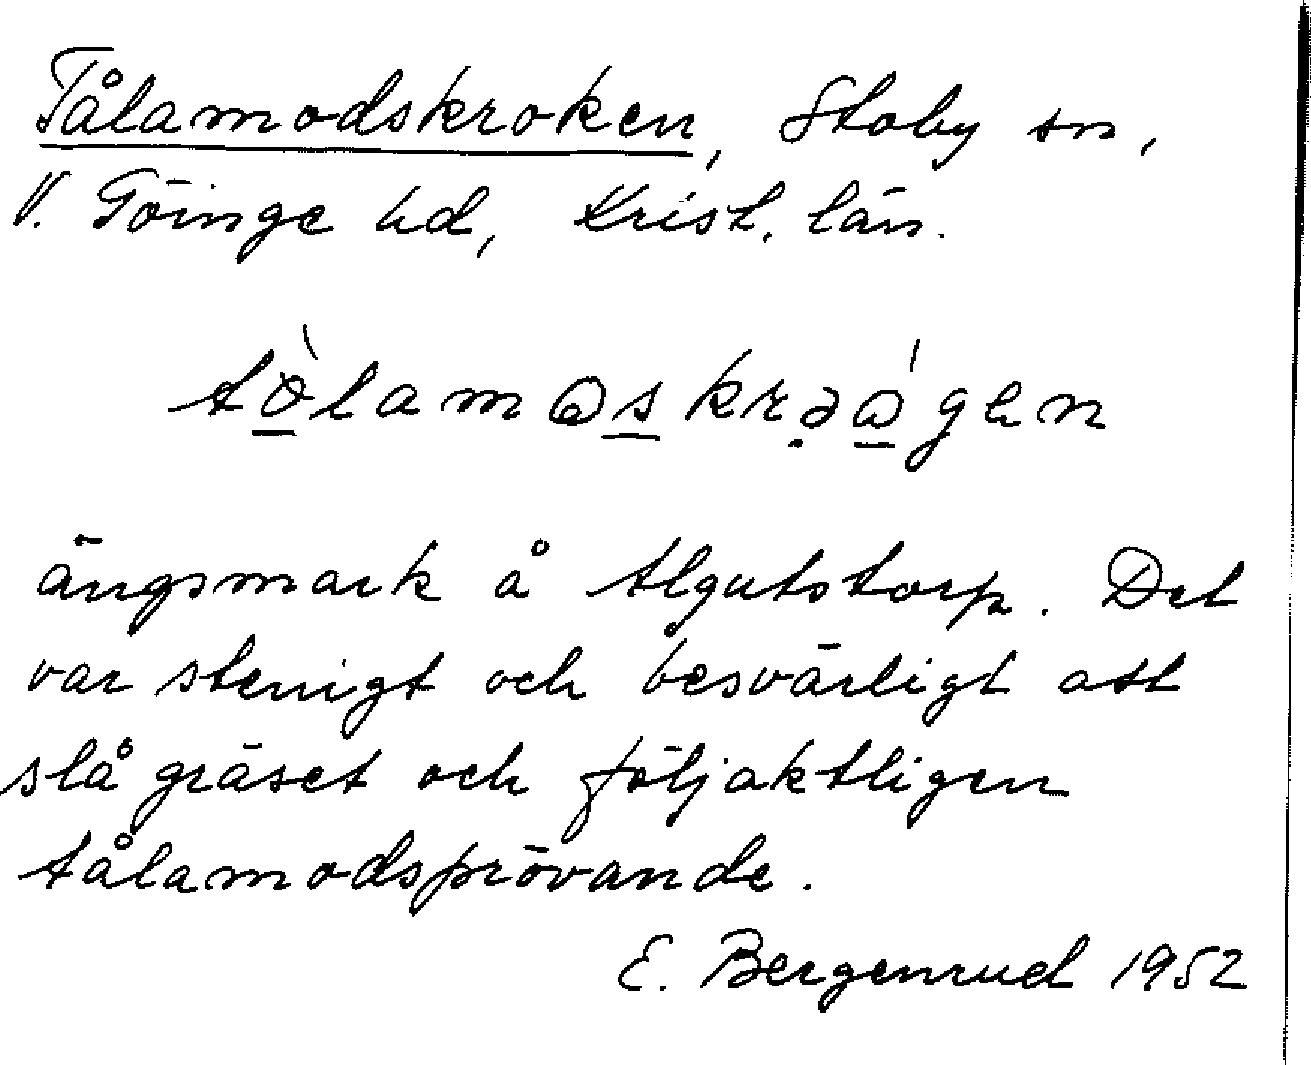 Tålamodskroken, Stoby sn,
V. Göinge hd, Krist. län.
ängsmark å Algutstorp. Det
var stenigt och besvärligt att
slå gräset och följaktligen
tålamodsprövande.
E. Bergenrud 1952